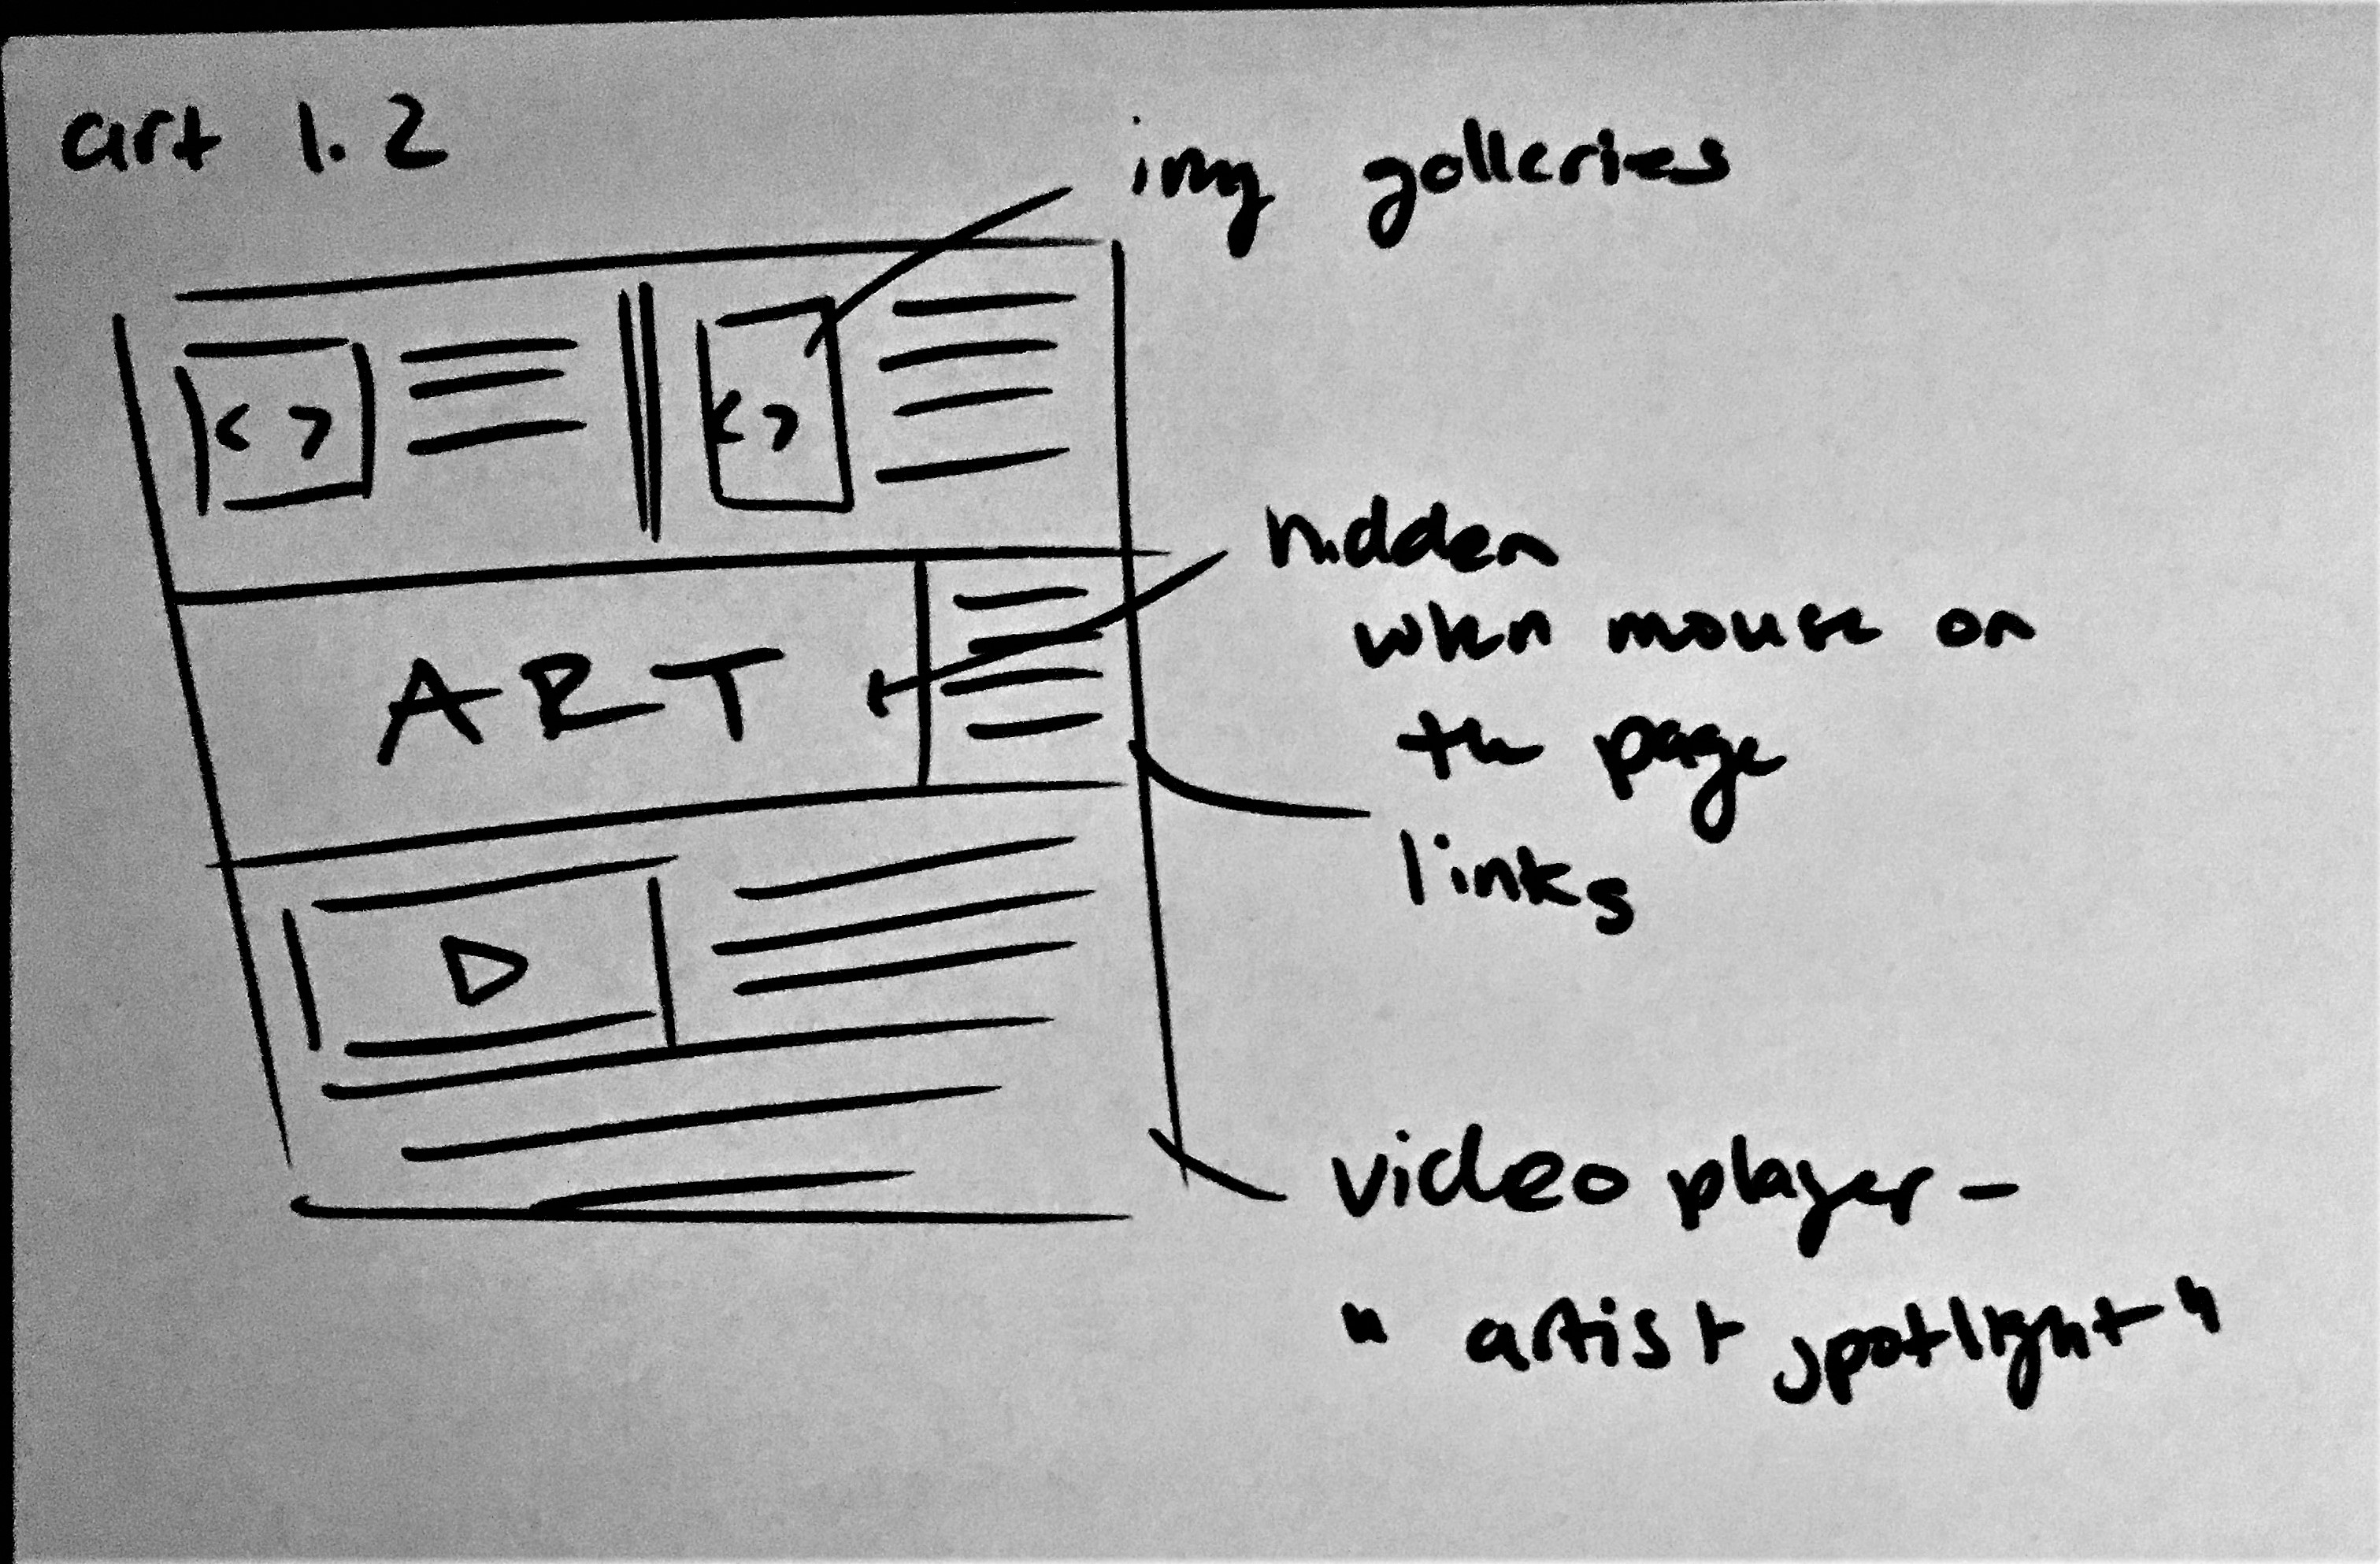 art 1.2
img galleries
< >
< >
hidden
when mouse on
the page
ART
links
video player -
"artist spotlight"